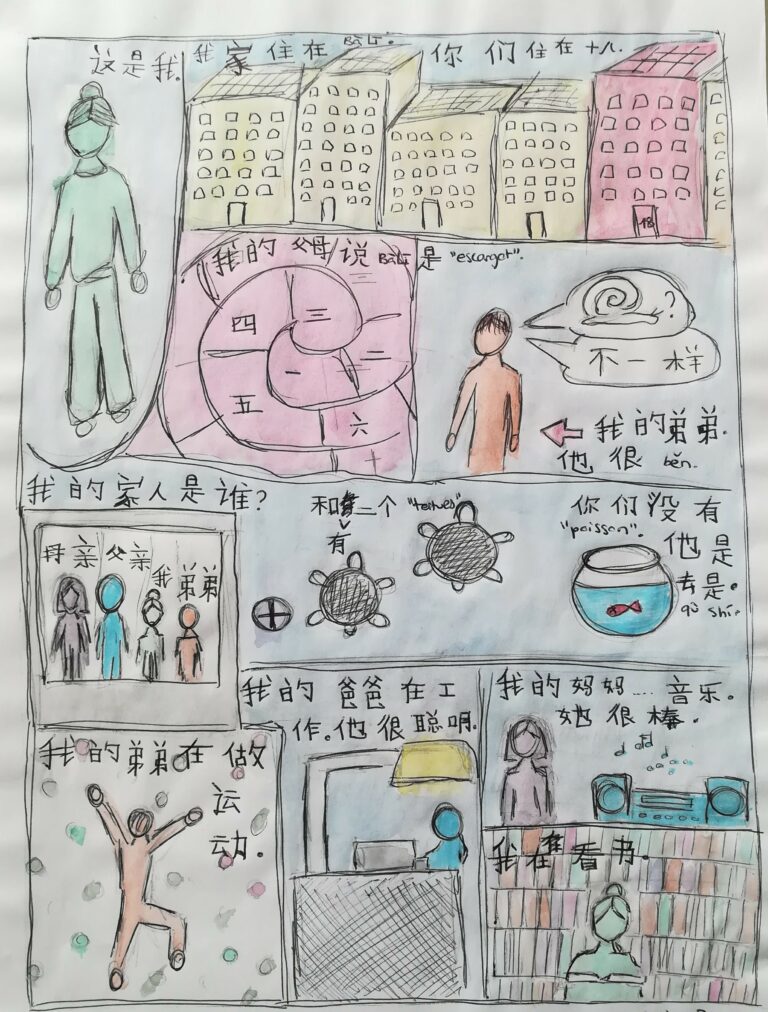 这是我.
我家住在
你们住在十八.
18
我的父母说
是 "escargot".
四 三
一 二
五 六
?
不一样
我的弟弟.
他很 běn.
我的家人是谁?
母亲 父亲
我 弟弟
和 二个
有
你们没有
"poisson".
他是
去是。
qù shì.
我的爸爸在工
作.他很聪明.
我的妈妈.... 音乐。
她很棒.
我的弟弟在做
运
动.
我在看书.